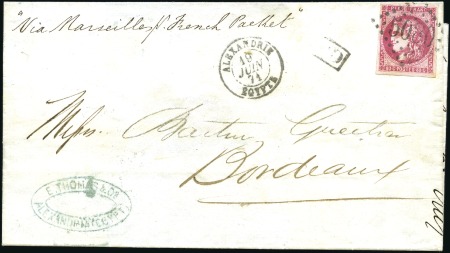 "Via Marseille p. French Packet"
ALEXANDRIE
19
JUIN
71
EGYPTE
PD
Messrs Barton Guestier
Bordeaux
E. THOMAS & Co
ALEXANDRIE EGYPT